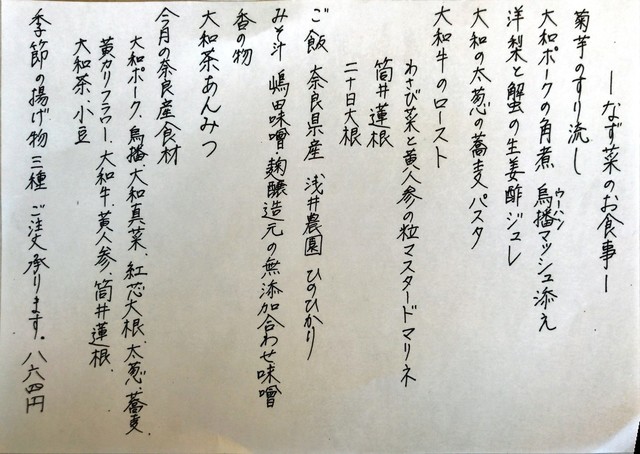 ―なず菜のお食事―
菊芋のすり流し
大和ポークの角煮 烏播マッシュ添え
ウーハン
洋梨と蟹の生姜酢ジュレ
大和の太葱の蕎麦パスタ
大和牛のロースト
わさび菜と黄人参の粒マスタードマリネ
筒井蓮根
二十日大根
ご飯 奈良県産 浅井農園 ひのひかり
みそ汁 嶋田味噌・麹醸造元の無添加合わせ味噌
香の物
大和茶あんみつ
今月の奈良産食材
大和ポーク、烏播、大和真菜、紅芯大根、太葱、蕎麦、
黄カリフラワー、大和牛、黄人参、筒井蓮根、
大和茶、小豆
季節の揚げ物三種 ご注文承ります。八六四円